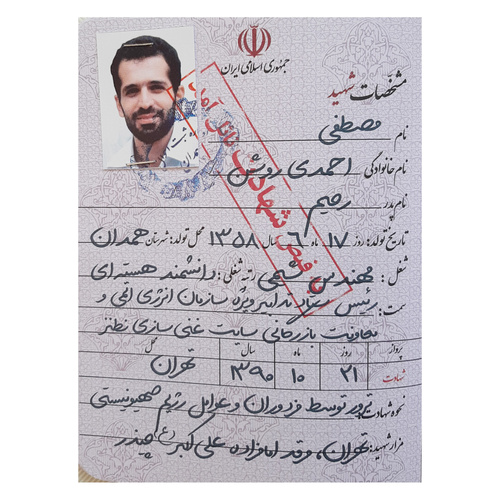 جمهوری اسلامی ایران
مشخصات شهید
نام مصطفی
نام خانوادگی احمدی روشن
نام پدر رحیم
تاریخ تولد: روز ۱۷ ماه ۶ سال ۱۳۵۸ محل تولد: شهرستان همدان
شغل: مهندس شیمی رتبه شغلی: دانشمند هسته‌ای
سمت: رئیس ستاد تدابیر ویژه سازمان انرژی اتمی و
معاونت بازرگانی سایت غنی سازی نطنز
پرواز روز ماه سال محل
شهادت ۲۱ ۱۰ ۱۳۹۰ تهران
نحوه شهادت: ترور توسط مزدوران و عوامل رژیم صهیونیستی
مزار شهید: تهران، مرقد امامزاده علی اکبر (ع) چیذر
به فیض شهادت نائل آمد